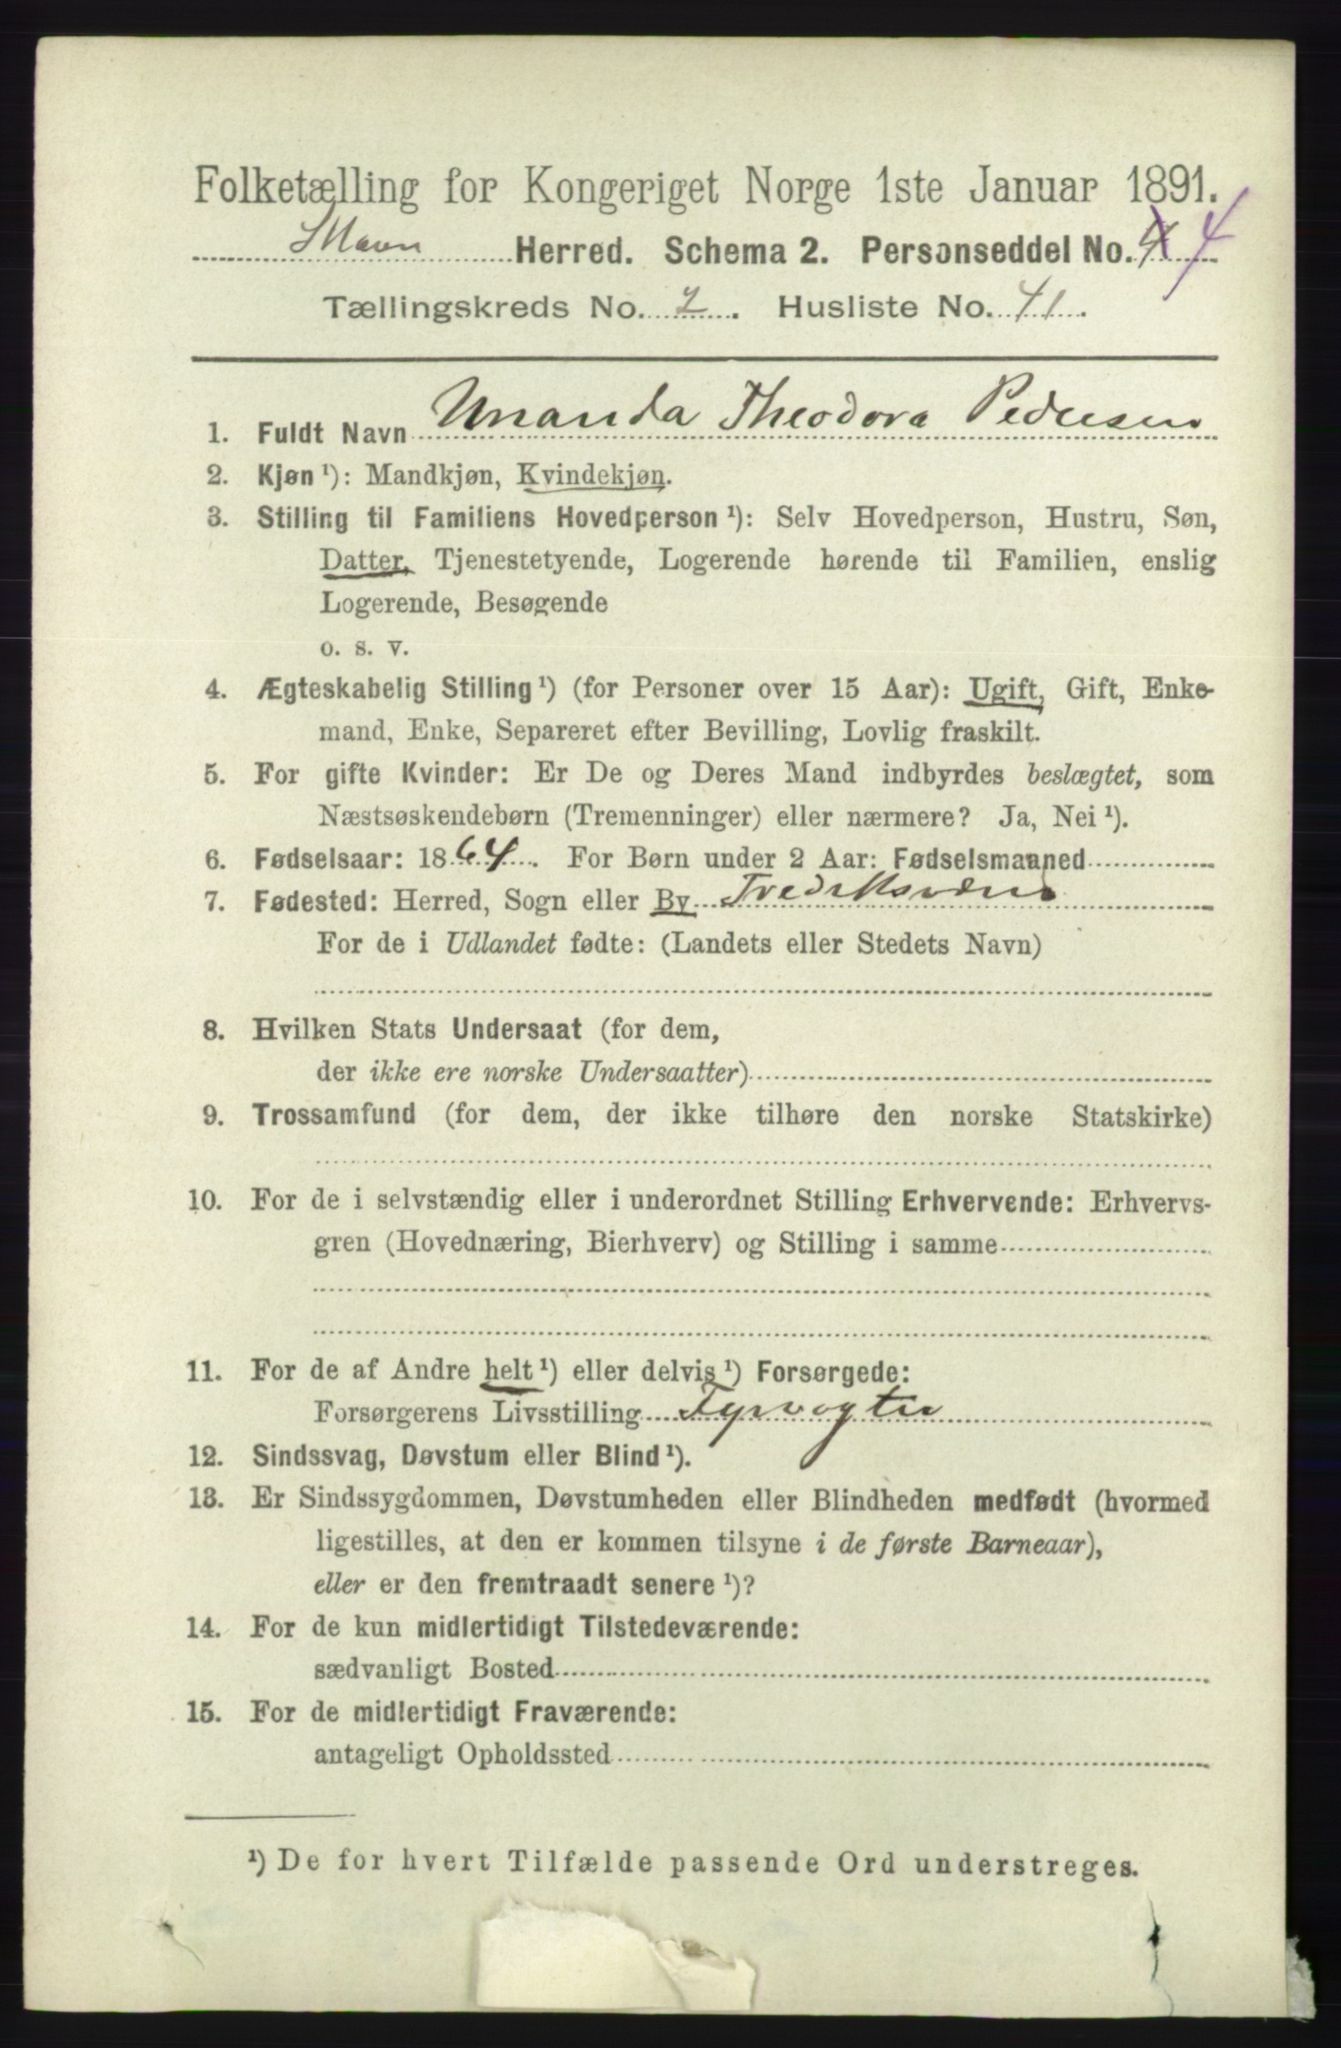 Folketælling for Kongeriget Norge 1ste Januar 1891.
Herred. Schema 2. Personseddel No. 4 4
Tællingskreds No. 2. Husliste No. 41.
1. Fuldt Navn Unanda Theodora Pedersen
2. Kjøn ¹): Mandkjøn, Kvindekjøn.
3. Stilling til Familiens Hovedperson ¹): Selv Hovedperson, Hustru, Søn,
Datter, Tjenestetyende, Logerende hørende til Familien, enslig
Logerende, Besøgende
o. s. v.
4. Ægteskabelig Stilling ¹) (for Personer over 15 Aar): Ugift, Gift, Enke-
mand, Enke, Separeret efter Bevilling, Lovlig fraskilt.
5. For gifte Kvinder: Er De og Deres Mand indbyrdes beslægtet, som
Næstsøskendebørn (Tremenninger) eller nærmere? Ja, Nei ¹).
6. Fødselsaar: 1864. For Børn under 2 Aar: Fødselsmaaned
7. Fødested: Herred, Sogn eller By Fredriksværn
For de i Udlandet fødte: (Landets eller Stedets Navn)
8. Hvilken Stats Undersaat (for dem,
der ikke ere norske Undersaatter)
9. Trossamfund (for dem, der ikke tilhøre den norske Statskirke)
10. For de i selvstændig eller i underordnet Stilling Erhvervende: Erhvervs-
gren (Hovednæring, Bierhverv) og Stilling i samme
11. For de af Andre helt ¹) eller delvis ¹) Forsørgede:
Forsørgerens Livsstilling Fyrvogter
12. Sindssvag, Døvstum eller Blind ¹).
13. Er Sindssygdommen, Døvstumheden eller Blindheden medfødt (hvormed
ligestilles, at den er kommen tilsyne i de første Barneaar),
eller er den fremtraadt senere ¹)?
14. For de kun midlertidigt Tilstedeværende:
sædvanligt Bosted
15. For de midlertidigt Fraværende:
antageligt Opholdssted
¹) De for hvert Tilfælde passende Ord understreges.